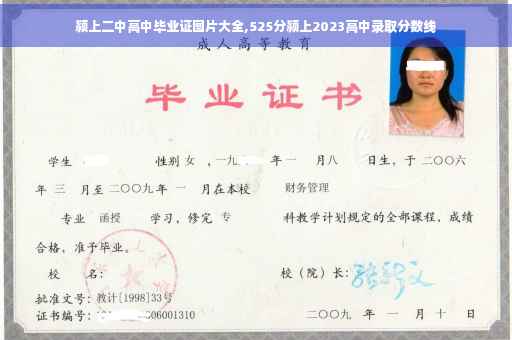 颍上二中高中毕业证图片大全,525分颍上2023高中录取分数线
成人高等教育
毕业证书
学生 性别 女 ,一九 年一 月八 日生,于二〇〇六
年 三 月至二〇〇九年 一 月在本校 财务管理
专业 函授 学习,修完 专 科教学计划规定的全部课程,成绩
合格,准予毕业。
校 名: 校(院)长:
批准文号:教计[1998]33号
证书编号: 06001310 二〇〇九 年 一 月 十 日